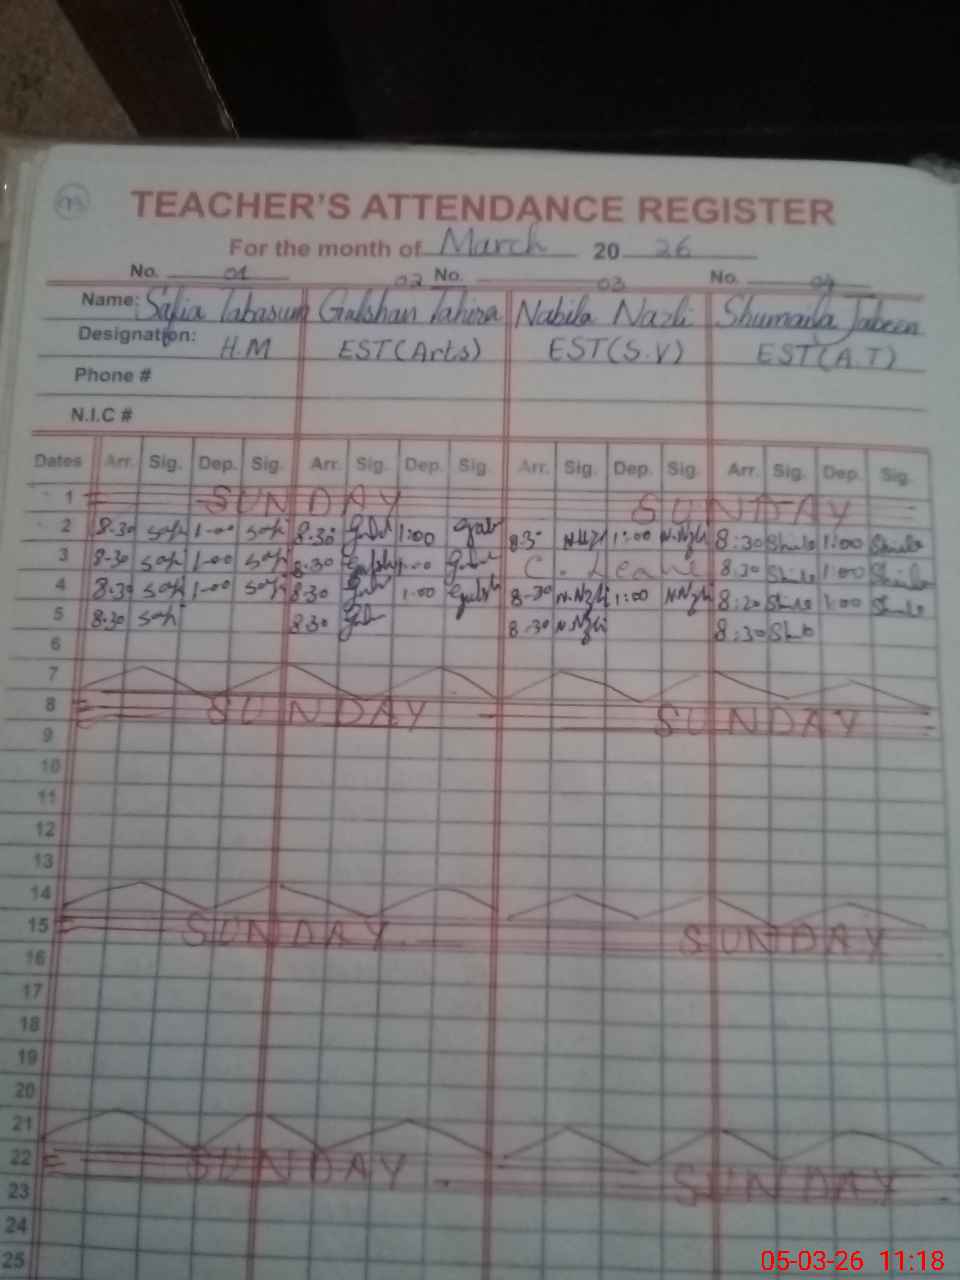 TEACHER'S ATTENDANCE REGISTER
For the month of March 2026
No. 01 02 No. 03 No. 04
Name: Safia Tabasum Gulshan Tahira Nabila Nazli Shumaila Jabeen
Designation: H.M EST(Arts) EST(S.V) EST(A.T)
Phone #
N.I.C #
Dates Arr. Sig. Dep. Sig. Arr. Sig. Dep. Sig. Arr. Sig. Dep. Sig. Arr. Sig. Dep. Sig.
1 SUNDAY SUNDAY
2 8-30 1-00 8:30 1:00 8.3 1:00 8:30 1:00
3 8-30 1-00 8:30 C. Leave 8:30 1:00
4 8-30 1-00 8:30 1-00 8-30 N.Nzli 1:00 8:20 1:00
5 8-30 8:30 8-30 N.Nzli 8:30
6
7
8 SUNDAY SUNDAY
9
10
11
12
13
14
15 SUNDAY SUNDAY
16
17
18
19
20
21
22 SUNDAY SUNDAY
23
24
25
05-03-26 11:18